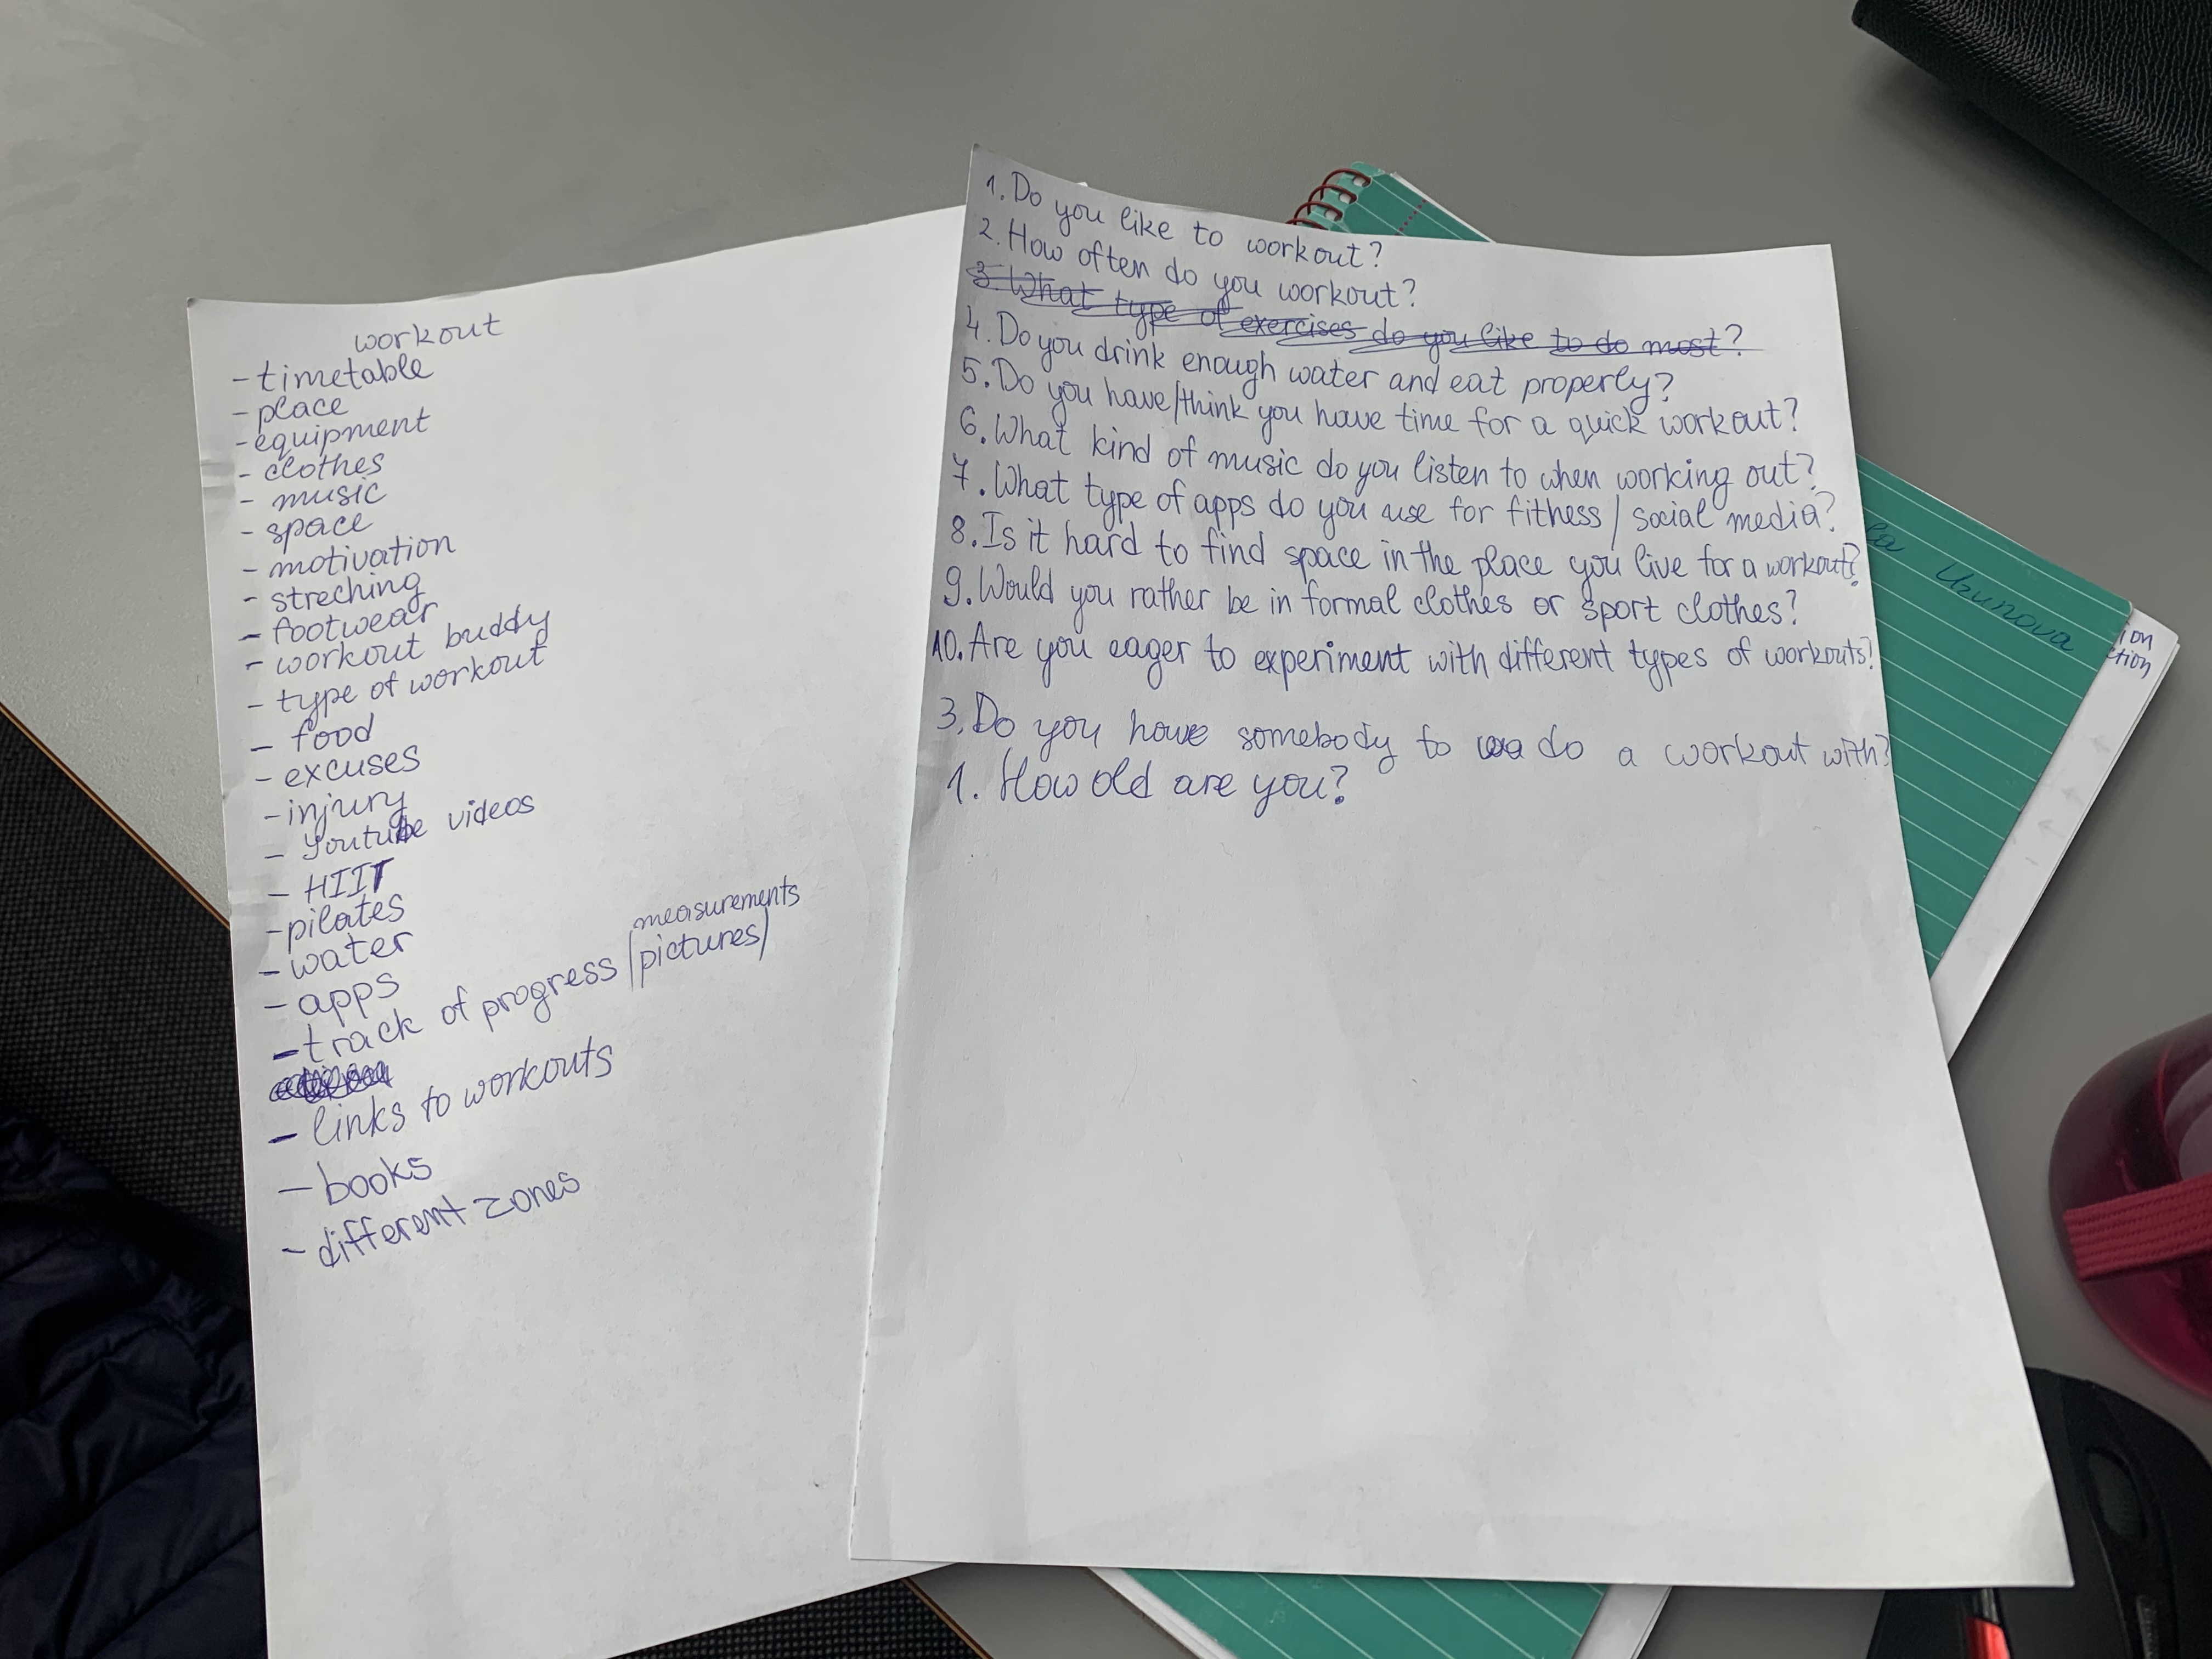 workout
- timetable
- place
- equipment
- clothes
- music
- space
- motivation
- streching
- footwear
- workout buddy
- type of workout
- food
- excuses
- injury
- Youtube videos
- HIIT
- pilates
- water
- apps
measurements
- track of progress /pictures/
- links to workouts
- books
- different zones
1. Do you like to workout?
2. How often do you workout?
3. What type of exercises do you like to do most?
4. Do you drink enough water and eat properly?
5. Do you have/think you have time for a quick workout?
6. What kind of music do you listen to when working out?
7. What type of apps do you use for fithess / social media?
8. Is it hard to find space in the place you live for a workout?
9. Would you rather be in formal clothes or sport clothes?
10. Are you eager to experiment with different types of workouts?
3. Do you have somebody to do a workout with?
1. How old are you?
Usunova
ion
ction